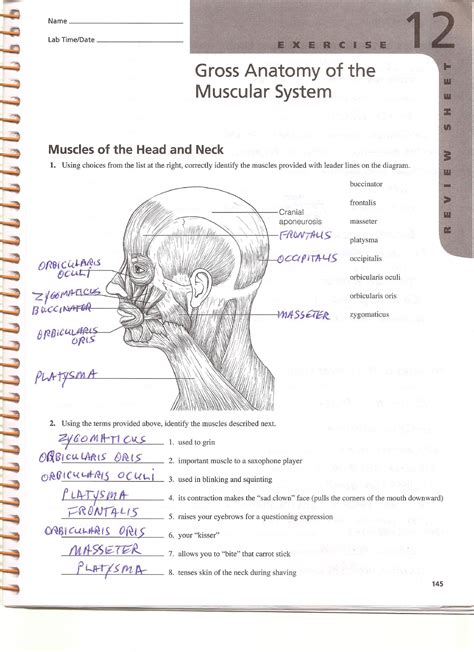 Name
Lab Time/Date
EXERCISE 12
REVIEW SHEET
Gross Anatomy of the
Muscular System
Muscles of the Head and Neck
1. Using choices from the list at the right, correctly identify the muscles provided with leader lines on the diagram.
buccinator
frontalis
masseter
platysma
occipitalis
orbicularis oculi
orbicularis oris
zygomaticus
Cranial
aponeurosis
FRONTALIS
OCCIPITALIS
MASSETER
ORBICULARIS
OCULI
ZYGOMATICUS
BUCCINATOR
ORBICULARIS
ORIS
PLATYSMA
2. Using the terms provided above, identify the muscles described next.
ZYGOMATICUS 1. used to grin
ORBICULARIS ORIS 2. important muscle to a saxophone player
ORBICULARIS OCULI 3. used in blinking and squinting
PLATYSMA 4. its contraction makes the “sad clown” face (pulls the corners of the mouth downward)
FRONTALIS 5. raises your eyebrows for a questioning expression
ORBICULARIS ORIS 6. your “kisser”
MASSETER 7. allows you to “bite” that carrot stick
PLATYSMA 8. tenses skin of the neck during shaving
145